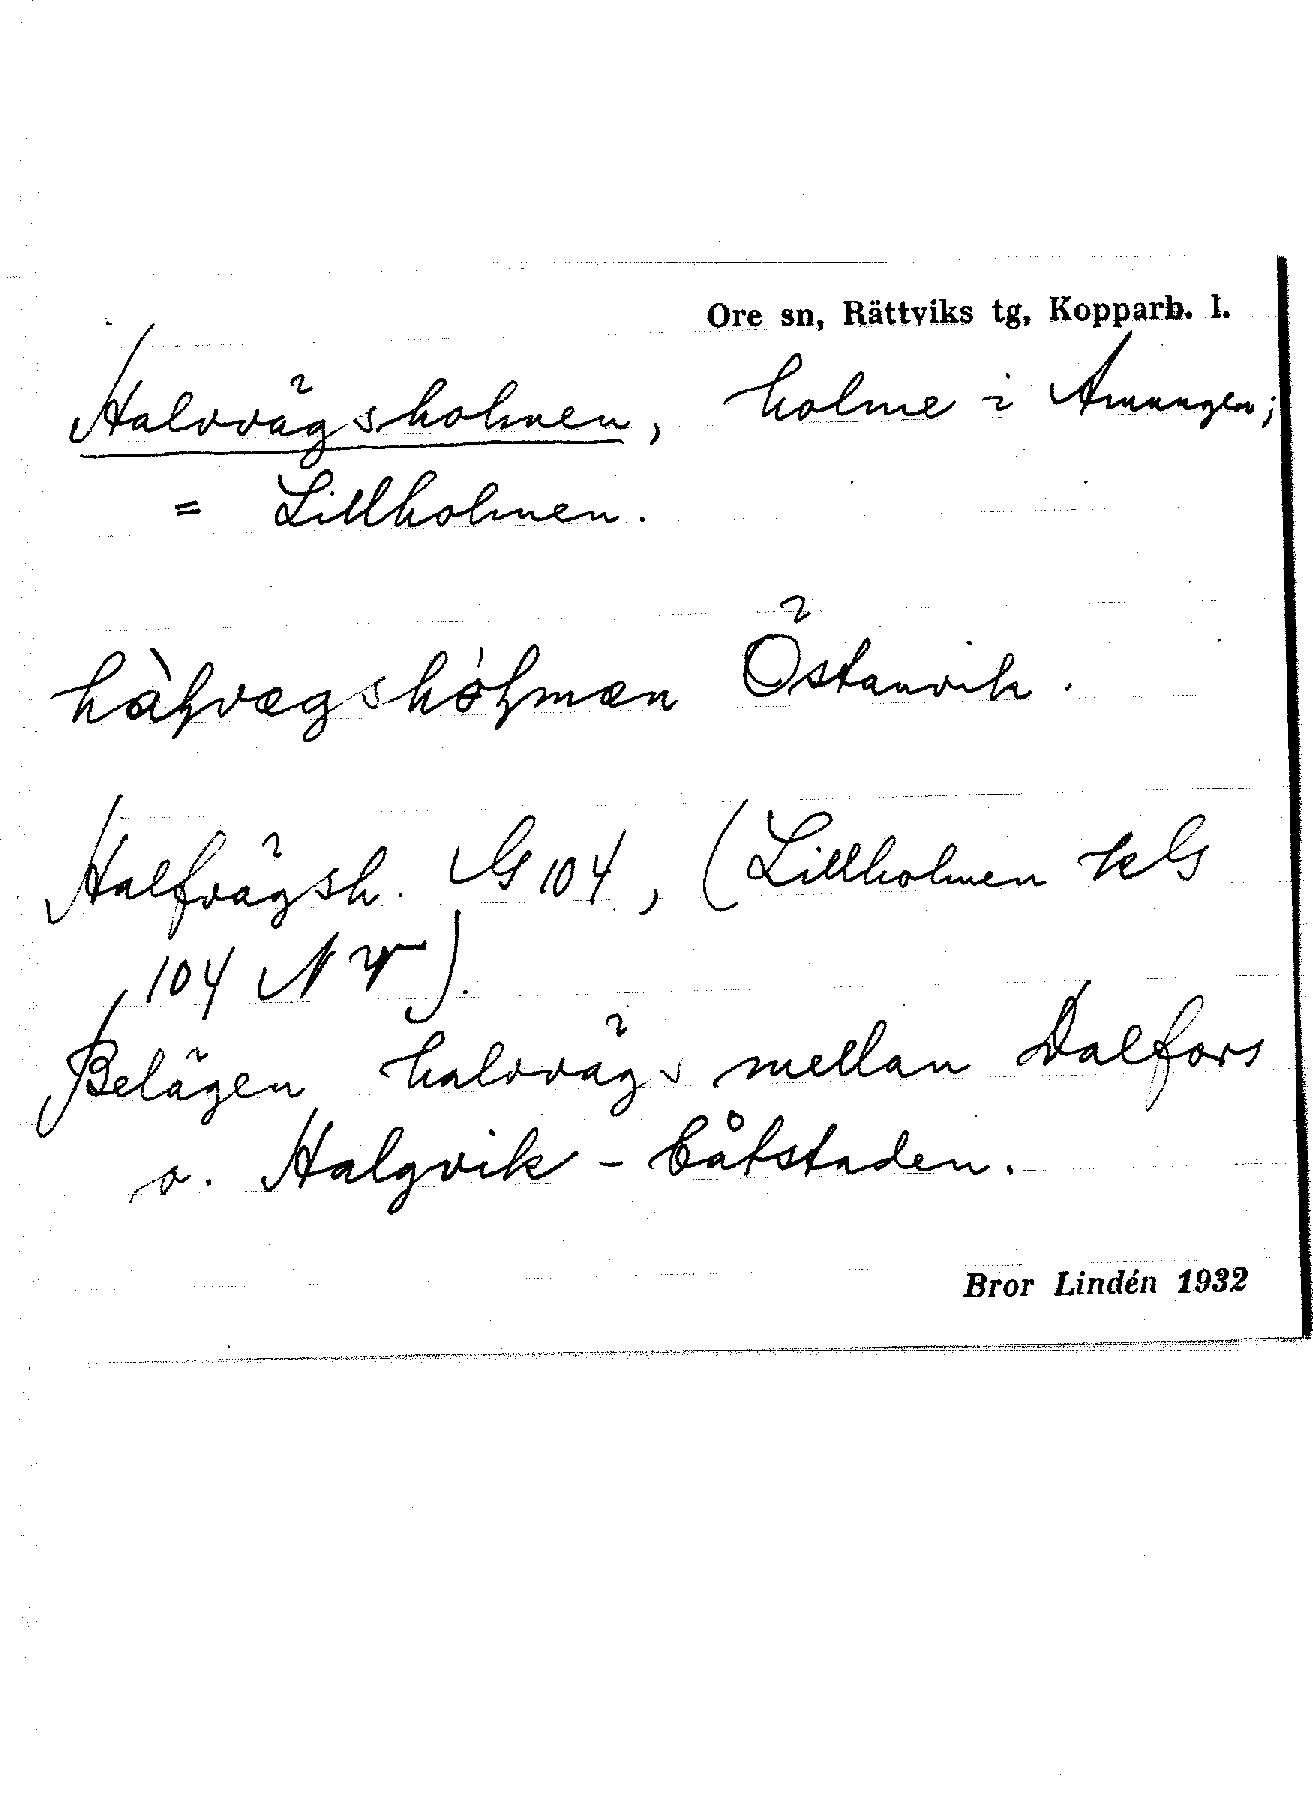 Ore sn, Rättviks tg, Kopparb. l.
Halvvägsholmen, holme i Amungen;
= Lillholmen.
hàɫvægshòɫmæn Östanvik.
Halfvägsh. G 104, (Lillholmen kG
104 NV).
Belägen halvvägs mellan Dalfors
o. Halgvik - båtstaden.
Bror Lindén 1932